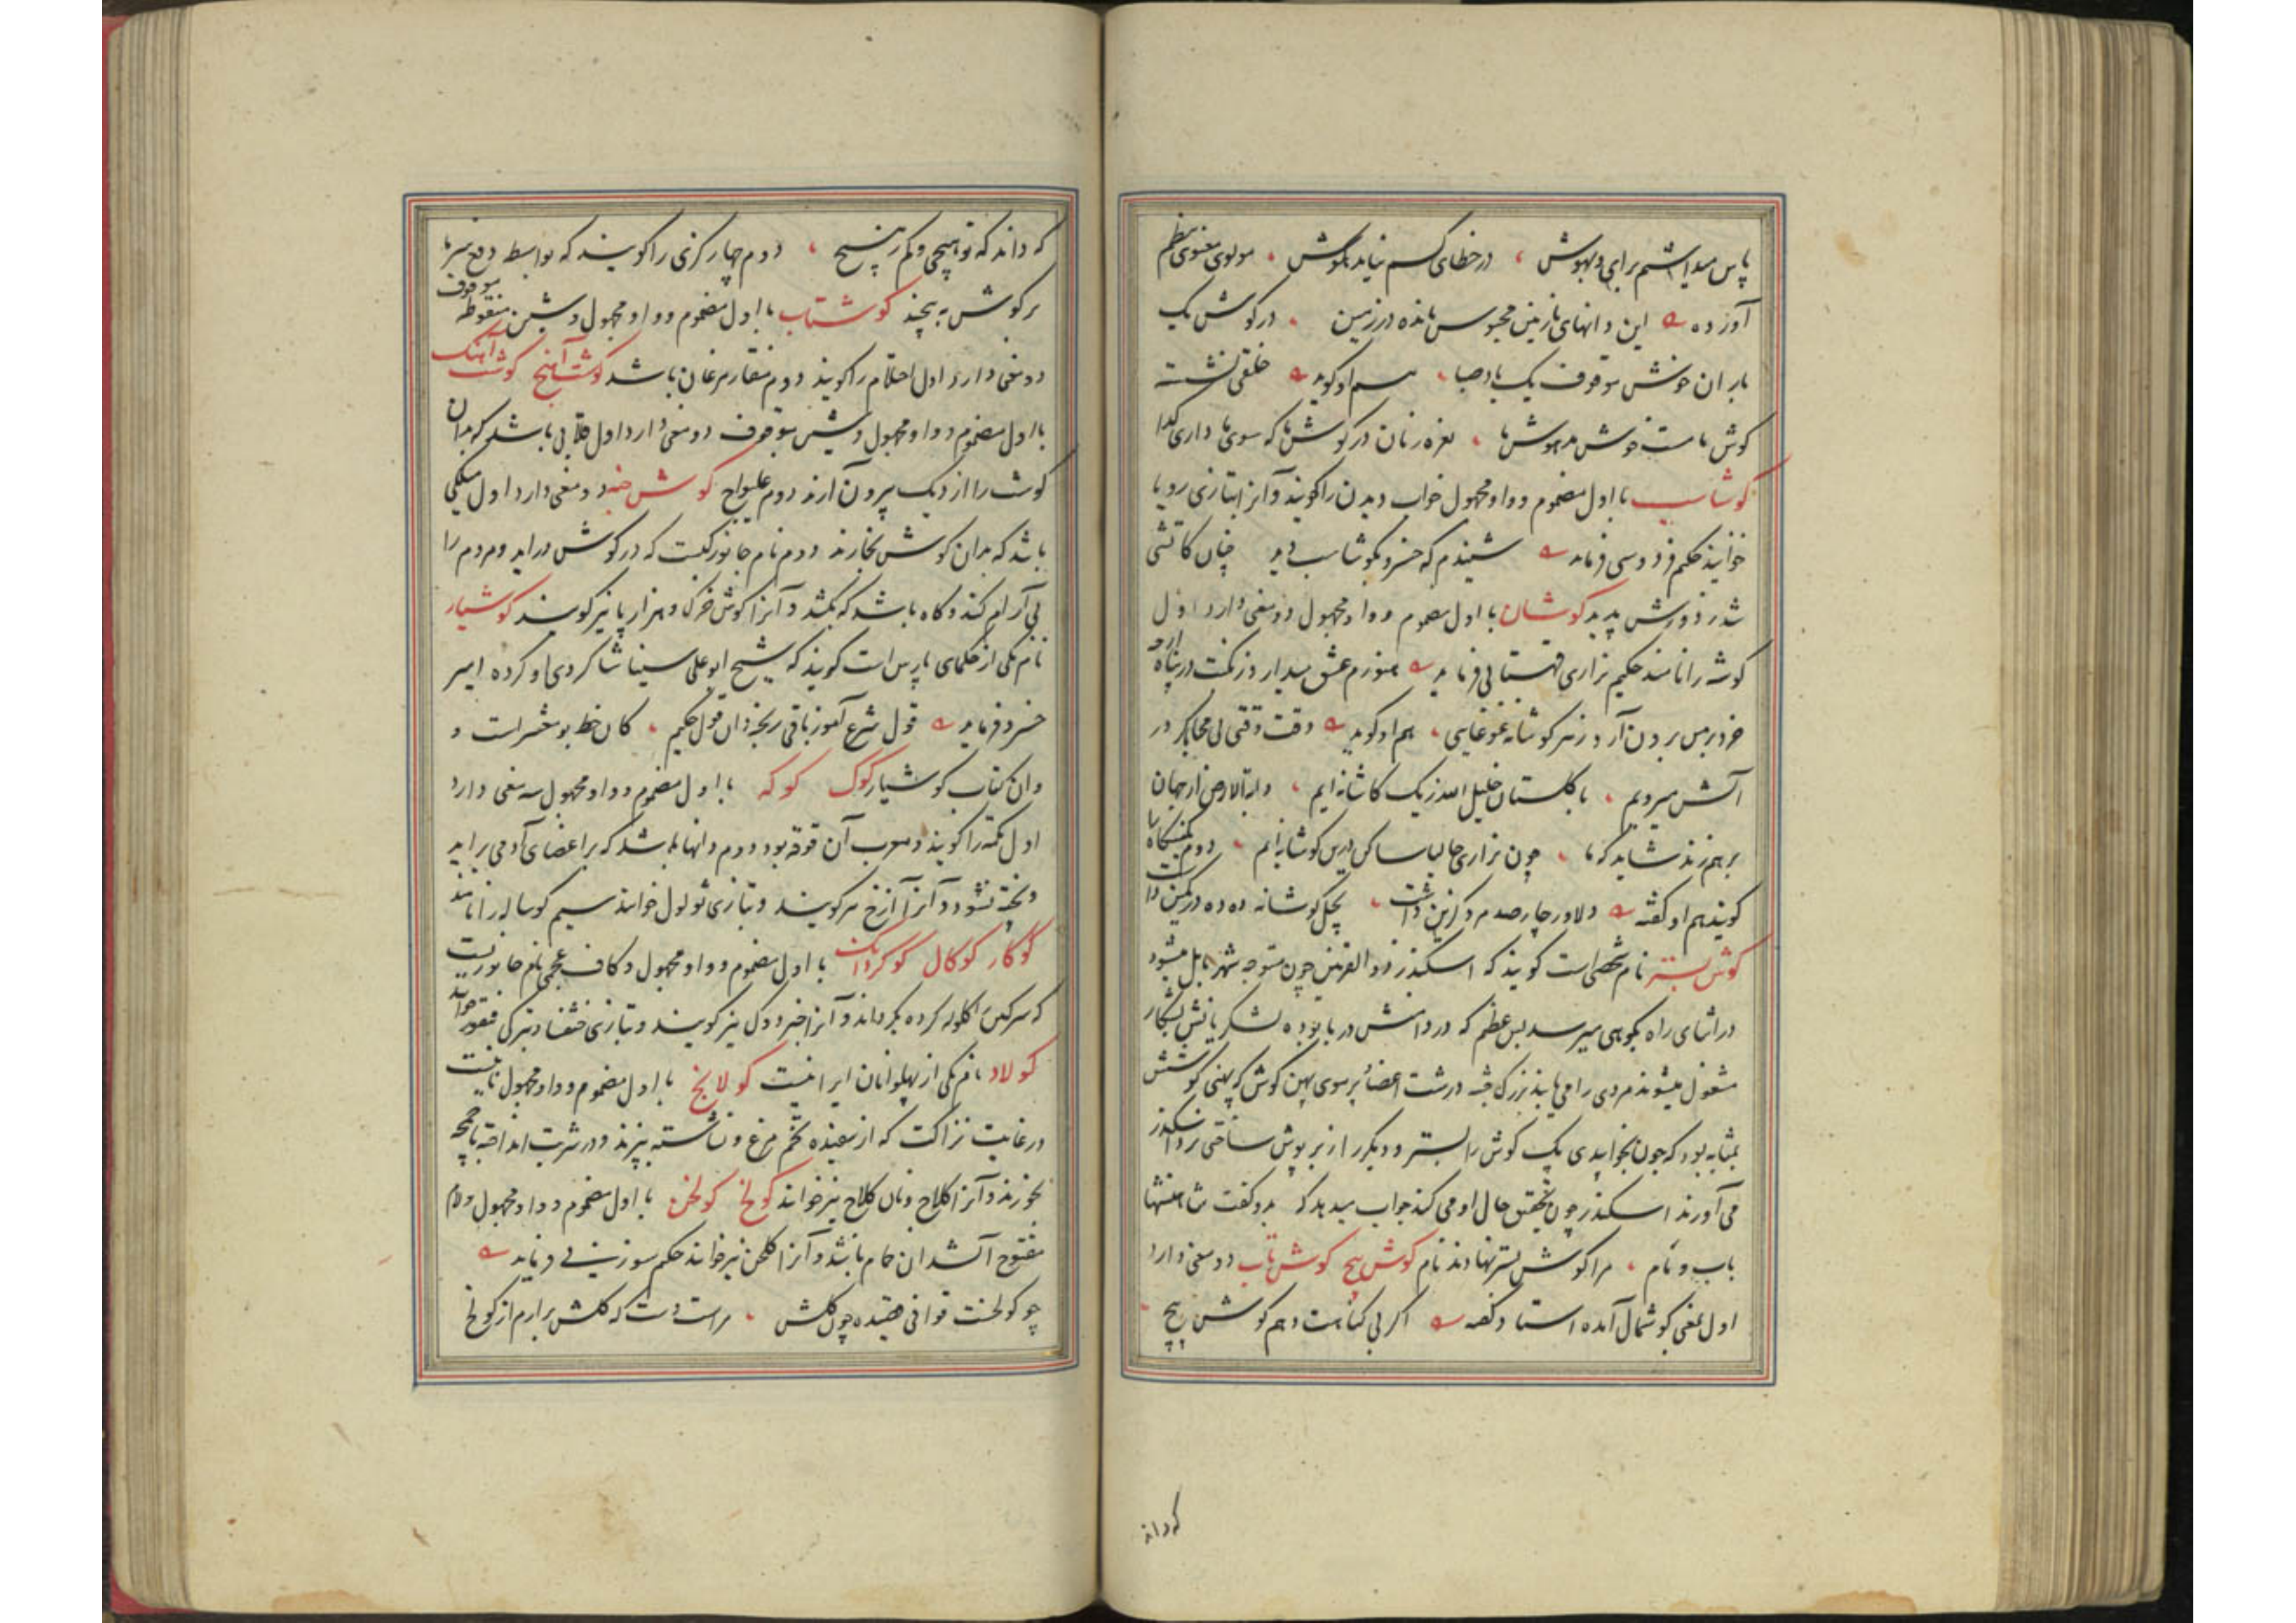 پاس میداشتم برای و بهوش ، در خطای کسم نیاید گوش ، مولوی معنوی نظم
آورده این دانهای نازنین محبوس مانده در زمین ، در گوش یک
باران خوش موقوف یک باد صبا ، هم او گوید خلقی نشسته
گوش ما مست خوش مدهوش ما ، نعره زنان در گوش ما که سوی ما داری گدا
گوشاسب با اول مضموم و واو مجهول خواب دیدن را گویند و آنرا بتازی رویا
خوانند حکیم فردوسی فرماید شنیدم که خسرو بگوشاسب دید چنان کاتشی
شد ز دورش پدید گوشان با اول مضموم و واو مجهول دو معنی دارد اول
گوشه را نامند حکیم نزاری قهستانی فرماید هنوزم عشق میدارد ز نکبت در پناه
خود برمن برون آرد ز هر گوشانه غوغایی ، هم او گوید وقت وقتی بی محابا گر در
آتش میرویم ، با گلستان خلیل الله ز یک کاشانه ایم ، دابة الارض ار جهان
برهم زند شاید که ما ، چون نزاری حالیا ساکن درین گوشانه ایم ، دوم کمینگاه را
گویند هم او گفته دلاور چارصد مرد گزین داشت ، بچل گوشانه ده ده در کمین داشت
گوش بستر نام شخصی است گویند که اسکندر ذو القرنین چون متوجه شهر بابل میشود
در اثنای راه بکوهی میرسد بس عظیم که در دامنش دریا بوده لشکریانش بشکار
مشغول میشوند مردی را می یابند بزرگ جثه درشت اعضا پر موی پهن گوش که پهنی گوشش
بمثابه بود که چون بخوابیدی یک گوش را بستر و دیگر را زبر پوش ساختی نزد اسکندر
می آورند اسکندر چون تحقیق حال او می کند جواب میدهد که بدو گفت شاها منشها
باب و مام ، مرا گوش بستر نهادند نام گوش پیچ گوش تاب دو معنی دارد
اول بمعنی گوشمال آمده استاد گفته اگر بی گناهست و هم گوش پیچ
که داند
که داند که تو هیچی و کم ز هیچ ، دوم چهار گزی را گویند که بواسطه دفع سرما
بر گوش به پیچند گوشتاب با اول مضموم و واو مجهول و شین منقوطه موقوف
دو معنی دارد اول احتلام را گویند دوم منقار مرغان باشد گوشت آهنج گوشت آهنگ
با اول مضموم و واو مجهول و شین موقوف دو معنی دارد اول قلابی باشد که بدان
گوشت را از دیگ بیرون آرند دوم غلیواج گوش خبه دو معنی دارد اول میلکی
باشد که بدان گوش بخارند دوم نام جانورکیست که در گوش در آید و مردم را
بی آرام کند و گاه باشد که بکشد و آنرا گوش خزک و هزار پا نیز گویند کوشیار
نام یکی از حکمای پارس است گویند که شیخ ابو علی سینا شاگردی او کرده امیر
خسرو فرماید قول شرع آموز باقی ریخ دان قول حکیم ، کان خط بو معشر است و
وان کتاب کوشیار کوک کوکه با اول مضموم و واو مجهول سه معنی دارد
اول تکمه را گویند و معرب آن قوقه بود دوم دانها باشد که بر اعضای آدمی بر آید
و پخته نشود و آنرا آزخ نیز گویند و بتازی ثولول خوانند سیم گوساله را نامند
گوگار گوگال گوگردانک با اول مضموم و واو مجهول و کاف عجمی نام جانوریست
که سرگین را گلوله کرده بگرداند و آنرا خبزدوک نیز گویند و بتازی خنفسا و بترکی خوانند
کولاد نام یکی از پهلوانان ایرانیست کولانج با اول مضموم و واو مجهول نانیست
در غایت نزاکت که از سفیده تخم مرغ و نشاسته پزند و در شربت انداخته با چمچه
بخورند و آنرا کلاج و نان کلاج نیز خوانند کولخ کولخن با اول مضموم و واو مجهول و لام
مفتوح آتشدان حمام باشد و آنرا گلخن نیز خوانند حکیم سوزنی فرماید
چو کولخست قوافی قصیده چون گلشن ، مراست دست که گلشن برارم از کولخ